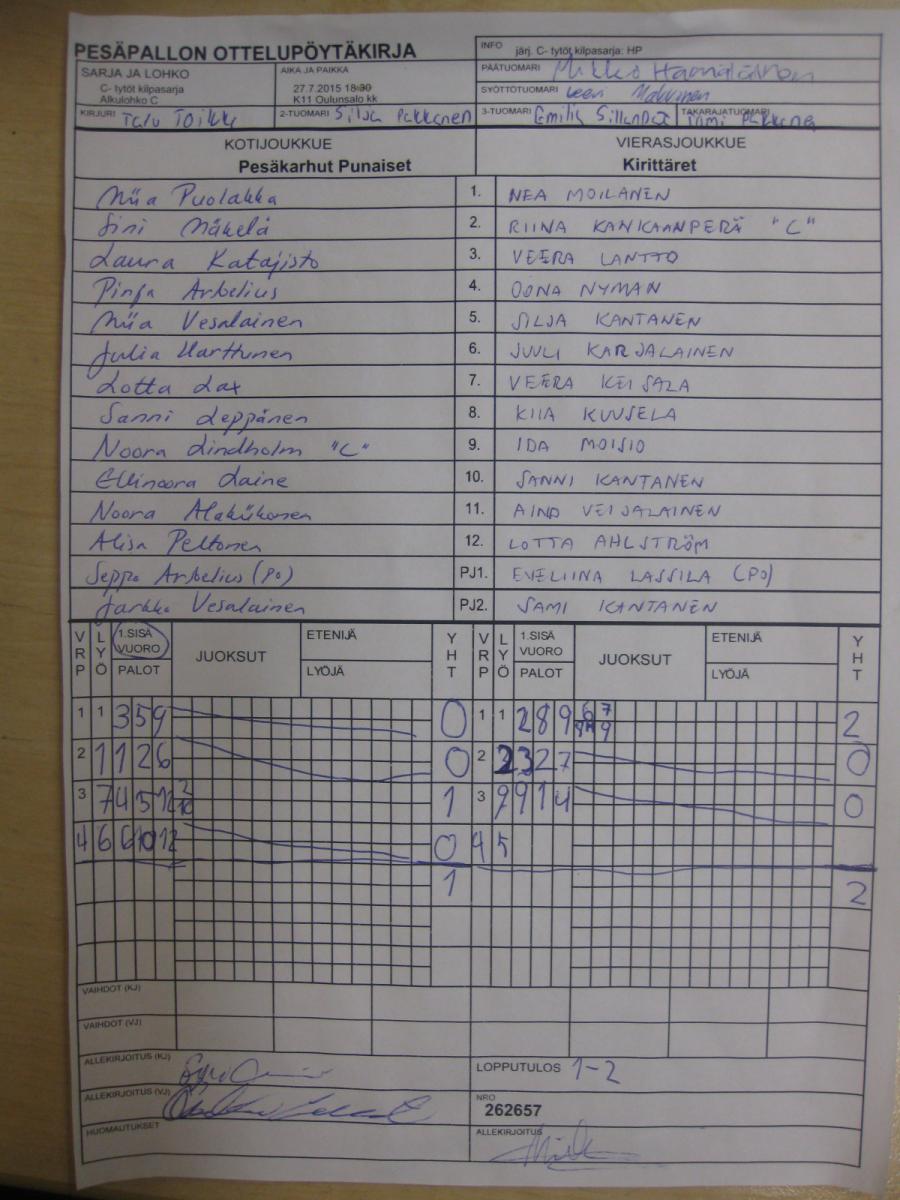 PESÄPALLON OTTELUPÖYTÄKIRJA
INFO järj. C- tytöt kilpasarja: HP
SARJA JA LOHKO
C- tytöt kilpasarja
Alkulohko C
AIKA JA PAIKKA
27.7.2015 18:30
K11 Oulunsalo kk
PÄÄTUOMARI Mikko Hämäläinen
SYÖTTÖTUOMARI Leevi
KIRJURI Taru Toikko
2-TUOMARI Silja Pakkanen
3-TUOMARI Emilia
TAKARAJATUOMARI
KOTIJOUKKUE
Pesäkarhut Punaiset
VIERASJOUKKUE
Kirittäret
Miia Puolakka 1. NEA MOILANEN
Sini Mäkelä 2. RIINA KANKAANPERÄ "C"
Laura Katajisto 3. VEERA LANTTO
Pinja Arbelius 4. OONA NYMAN
Miia Vesalainen 5. SILJA KANTANEN
Julia Harttunen 6. JUULI KARJALAINEN
Lotta Lax 7. VEERA KEISALA
Sanni Leppänen 8. KIIA KUUSELA
Noora Lindholm "C" 9. IDA MOISIO
Ellinoora Laine 10. SANNI KANTANEN
Noora Alakiikonen 11. AINO VEIJALAINEN
Alisa Peltonen 12. LOTTA AHLSTRÖM
Seppo Arbelius (PO) PJ1. EVELIINA LASSILA (PO)
Jarkko Vesalainen PJ2. SAMI KANTANEN
VRP LYÖ 1.SISÄ VUORO PALOT JUOKSUT ETENIJÄ LYÖJÄ YHT VRP LYÖ 1.SISÄ VUORO PALOT JUOKSUT ETENIJÄ LYÖJÄ YHT
1 1 3 5 9 0 1 1 2 8 9 6 7 9 2
2 1 1 2 6 0 2 2 3 2 7 0
3 7 4 5 12 2 10 1 3 9 9 1 4 0
4 6 6 10 12 0 4 5
1 2
VAIHDOT (KJ)
VAIHDOT (VJ)
ALLEKIRJOITUS (KJ)
LOPPUTULOS 1-2
ALLEKIRJOITUS (VJ)
NRO
262657
HUOMAUTUKSET
ALLEKIRJOITUS